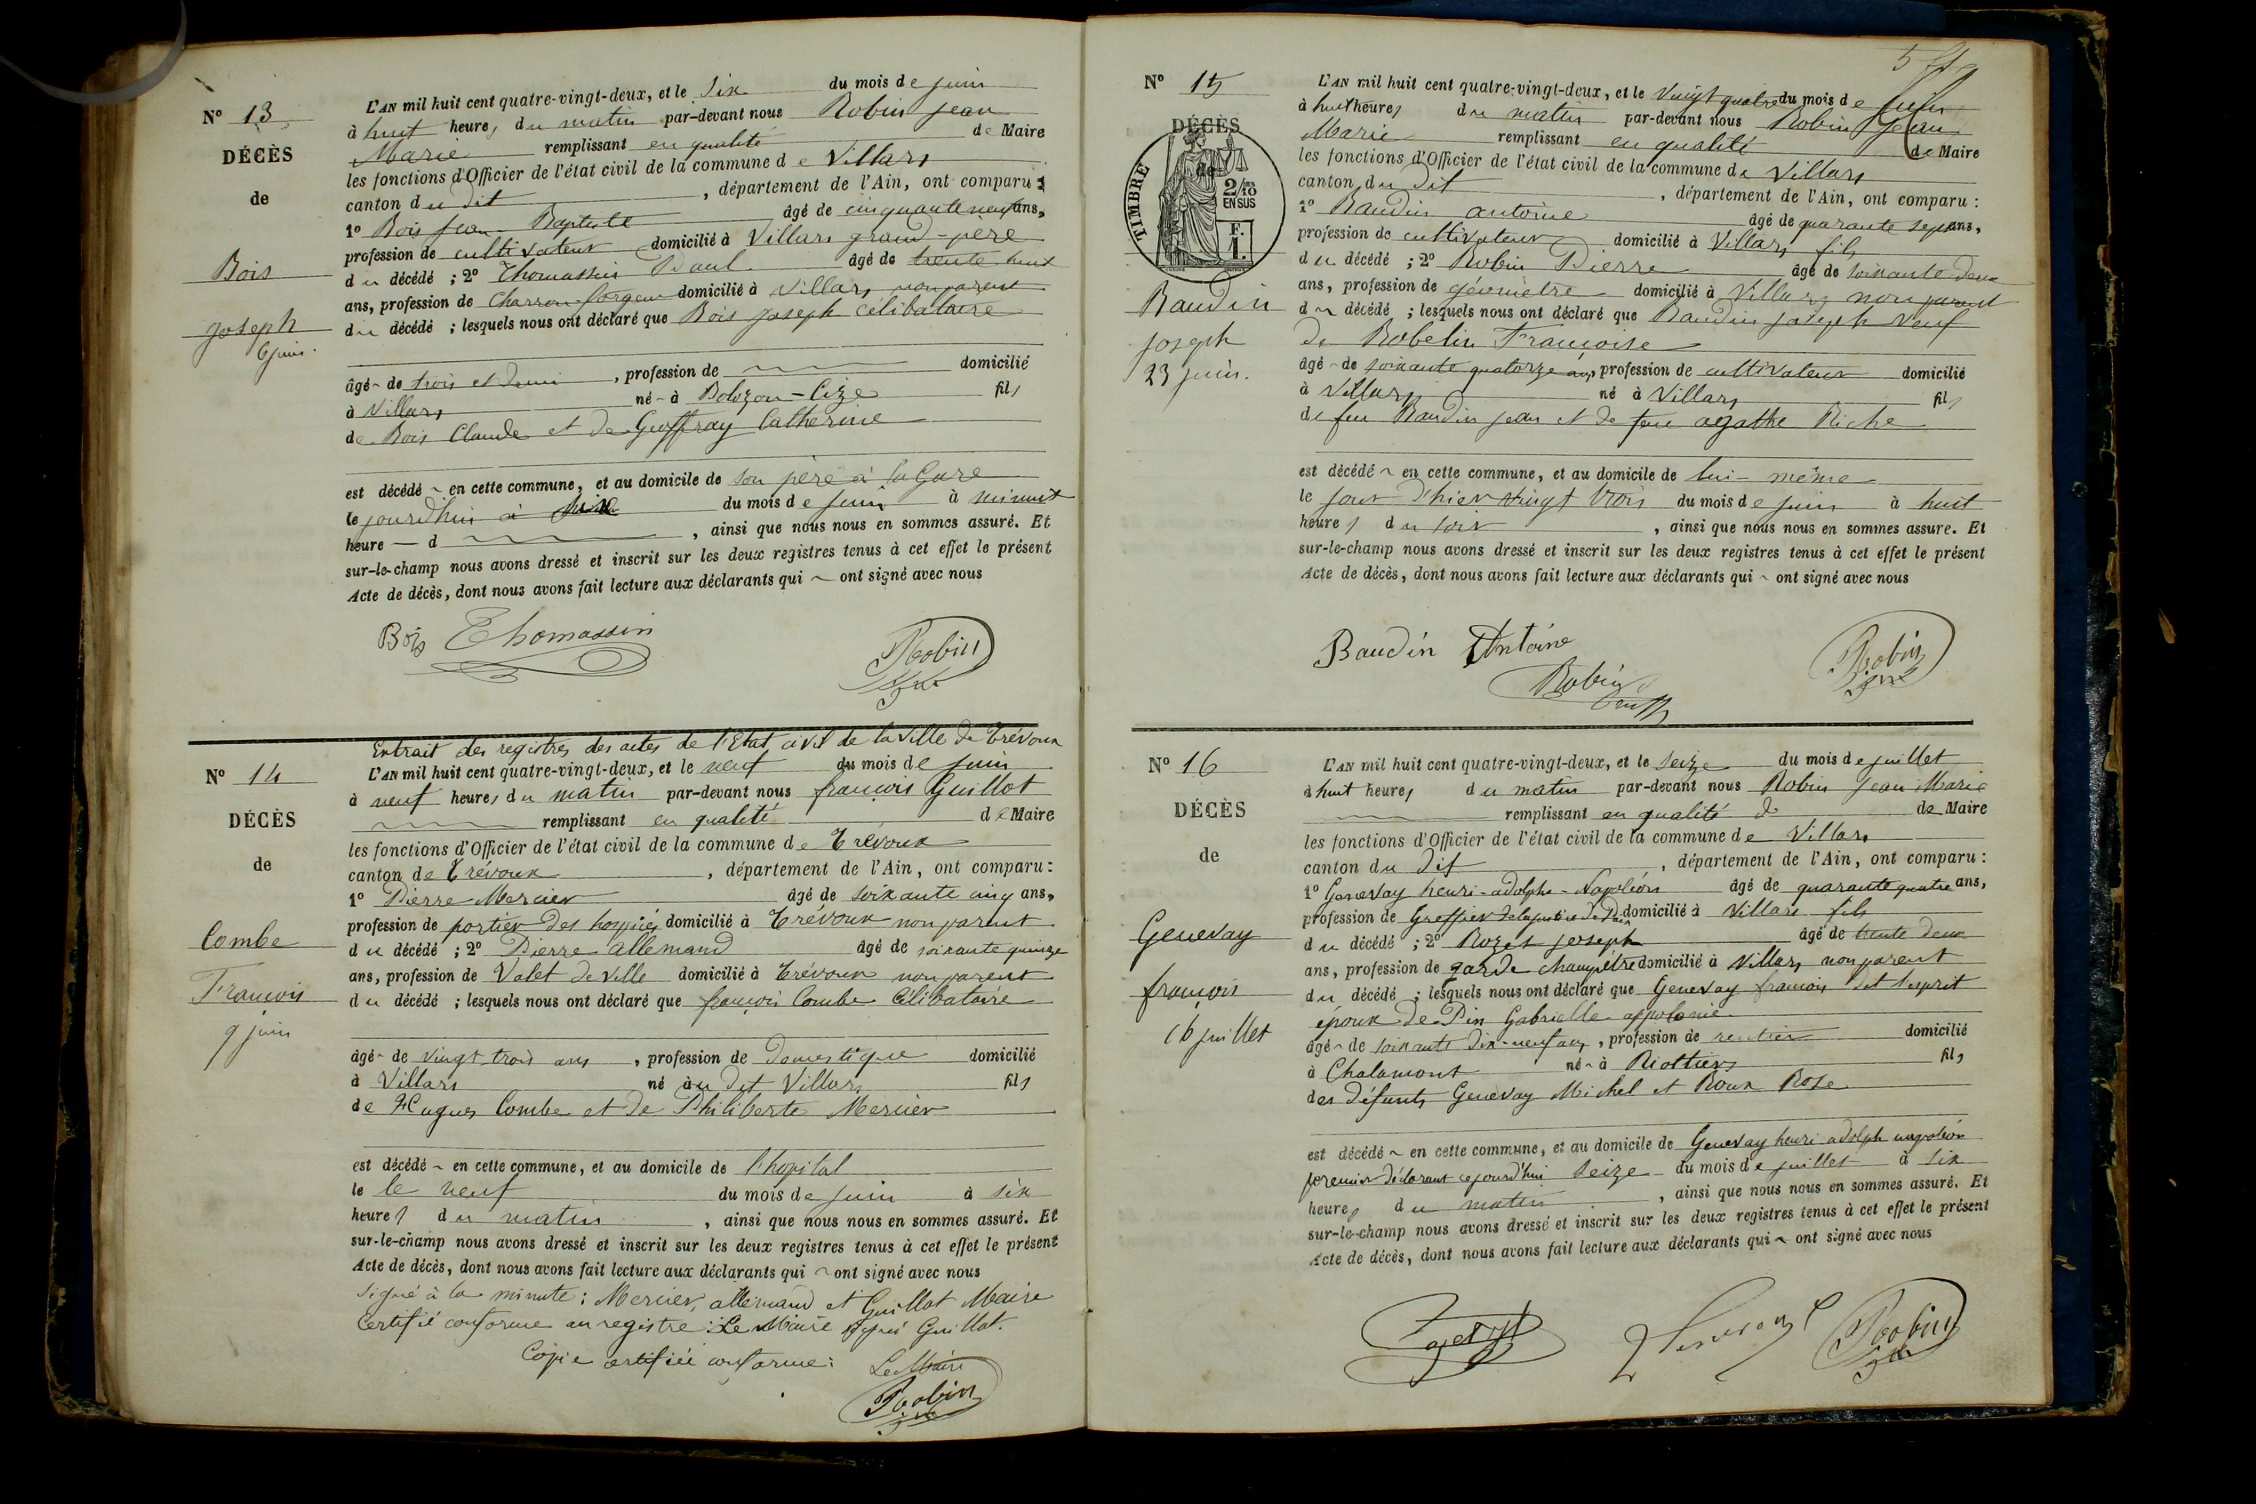 Nº 13
DÉCÈS
de
Bois
Joseph
6 juin.
L'AN mil huit cent quatre-vingt-deux, et le Six du mois de juin
à huit heures du matin par-devant nous Robin Jean
Marie remplissant en qualité de Maire
les fonctions d'Officier de l'état civil de la commune de Villars
canton du dit, département de l'Ain, ont comparu :
1º Bois Jean Baptiste âgé de cinquante neuf ans,
profession de cultivateur domicilié à Villars grand-père
du décédé ; 2º Thomassin Paul âgé de trente huit
ans, profession de Charron forgeur domicilié à Villars non parent
du décédé ; lesquels nous ont déclaré que Bois Joseph célibataire
âgé de trois et demi, profession de domicilié
à Villars né à Bolozon-Cize fils
de Bois Claude et de Geoffray Catherine
est décédé en cette commune, et au domicile de son père à la Gare
le jourd'hui à du mois de juin à minuit
heure d, ainsi que nous nous en sommes assuré. Et
sur-le-champ nous avons dressé et inscrit sur les deux registres tenus à cet effet le présent
Acte de décès, dont nous avons fait lecture aux déclarants qui ont signé avec nous
Bois Thomassin Robin
Nº 14
DÉCÈS
de
Combe
François
9 juin
Extrait des registres des actes de l'Etat civil de la ville de Trévoux
L'AN mil huit cent quatre-vingt-deux, et le neuf du mois de juin
à neuf heures du matin par-devant nous françois Guillot
remplissant en qualité de Maire
les fonctions d'Officier de l'état civil de la commune de Trévoux
canton de Trévoux, département de l'Ain, ont comparu :
1º Pierre Mercier âgé de soixante cinq ans,
profession de portier des hospices domicilié à Trévoux non parent
du décédé ; 2º Pierre allemand âgé de soixante quinze
ans, profession de Valet de ville domicilié à Trévoux non parent
du décédé ; lesquels nous ont déclaré que françois Combe Célibataire
âgé de vingt-trois ans, profession de Domestique domicilié
à Villars né au dit Villars fils
de Hugues Combe et de Philiberte Mercier
est décédé en cette commune, et au domicile de l'hopital
le le neuf du mois de juin à six
heures du matin, ainsi que nous nous en sommes assuré. Et
sur-le-champ nous avons dressé et inscrit sur les deux registres tenus à cet effet le présent
Acte de décès, dont nous avons fait lecture aux déclarants qui ont signé avec nous
Signé à la minute : Mercier, allemand et Guillot Maire
Certifié conforme au registre : Le Maire signé Guillot.
Copie certifiée conforme :
Le Maire
Robin
Nº 15
DÉCÈS
de
TIMBRE
2/10
EN SUS
F.
1.
Baudin
Joseph
23 juin.
L'AN mil huit cent quatre-vingt-deux, et le vingt quatre du mois de juin
à huit heures du matin par-devant nous Robin Jean
Marie remplissant en qualité de Maire
les fonctions d'Officier de l'état civil de la commune de Villars
canton du dit, département de l'Ain, ont comparu :
1º Baudin antoine âgé de quarante sept ans,
profession de cultivateur domicilié à Villars fils
du décédé ; 2º Robin Pierre âgé de soixante deux
ans, profession de géomètre domicilié à Villars non parent
du décédé ; lesquels nous ont déclaré que Baudin Joseph Veuf
de Robelin Françoise
âgé de soixante quatorze ans, profession de cultivateur domicilié
à Villars né à Villars fils
de feu Baudin Jean et de feue agathe Riche
est décédé en cette commune, et au domicile de lui-même
le jour d'hier vingt trois du mois de juin à huit
heures du soir, ainsi que nous nous en sommes assuré. Et
sur-le-champ nous avons dressé et inscrit sur les deux registres tenus à cet effet le présent
Acte de décès, dont nous avons fait lecture aux déclarants qui ont signé avec nous
Baudin Antoine
Robin
Robin
Nº 16
DÉCÈS
de
Genevay
françois
16 juillet
L'AN mil huit cent quatre-vingt-deux, et le Seize du mois de juillet
à huit heures du matin par-devant nous Robin Jean Marie
remplissant en qualité de de Maire
les fonctions d'Officier de l'état civil de la commune de Villars
canton du dit, département de l'Ain, ont comparu :
1º Genevay henri-adolphe-Napoléon âgé de quarante quatre ans,
profession de Greffier de la justice de Paix domicilié à Villars fils
du décédé ; 2º Rozet joseph âgé de trente deux
ans, profession de garde champêtre domicilié à Villars non parent
du décédé ; lesquels nous ont déclaré que Genevay françois St Esprit
époux de Pin Gabrielle appolonie
âgé de soixante dix-neuf ans, profession de rentier domicilié
à Chalamont né à Riottiers fils
des défunts Genevay Michel et Roux Rose
est décédé en cette commune, et au domicile de Genevay henri adolphe napoléon
premier déclarant cejourd'hui seize du mois de juillet à six
heures du matin, ainsi que nous nous en sommes assuré. Et
sur-le-champ nous avons dressé et inscrit sur les deux registres tenus à cet effet le présent
Acte de décès, dont nous avons fait lecture aux déclarants qui ont signé avec nous
Robin